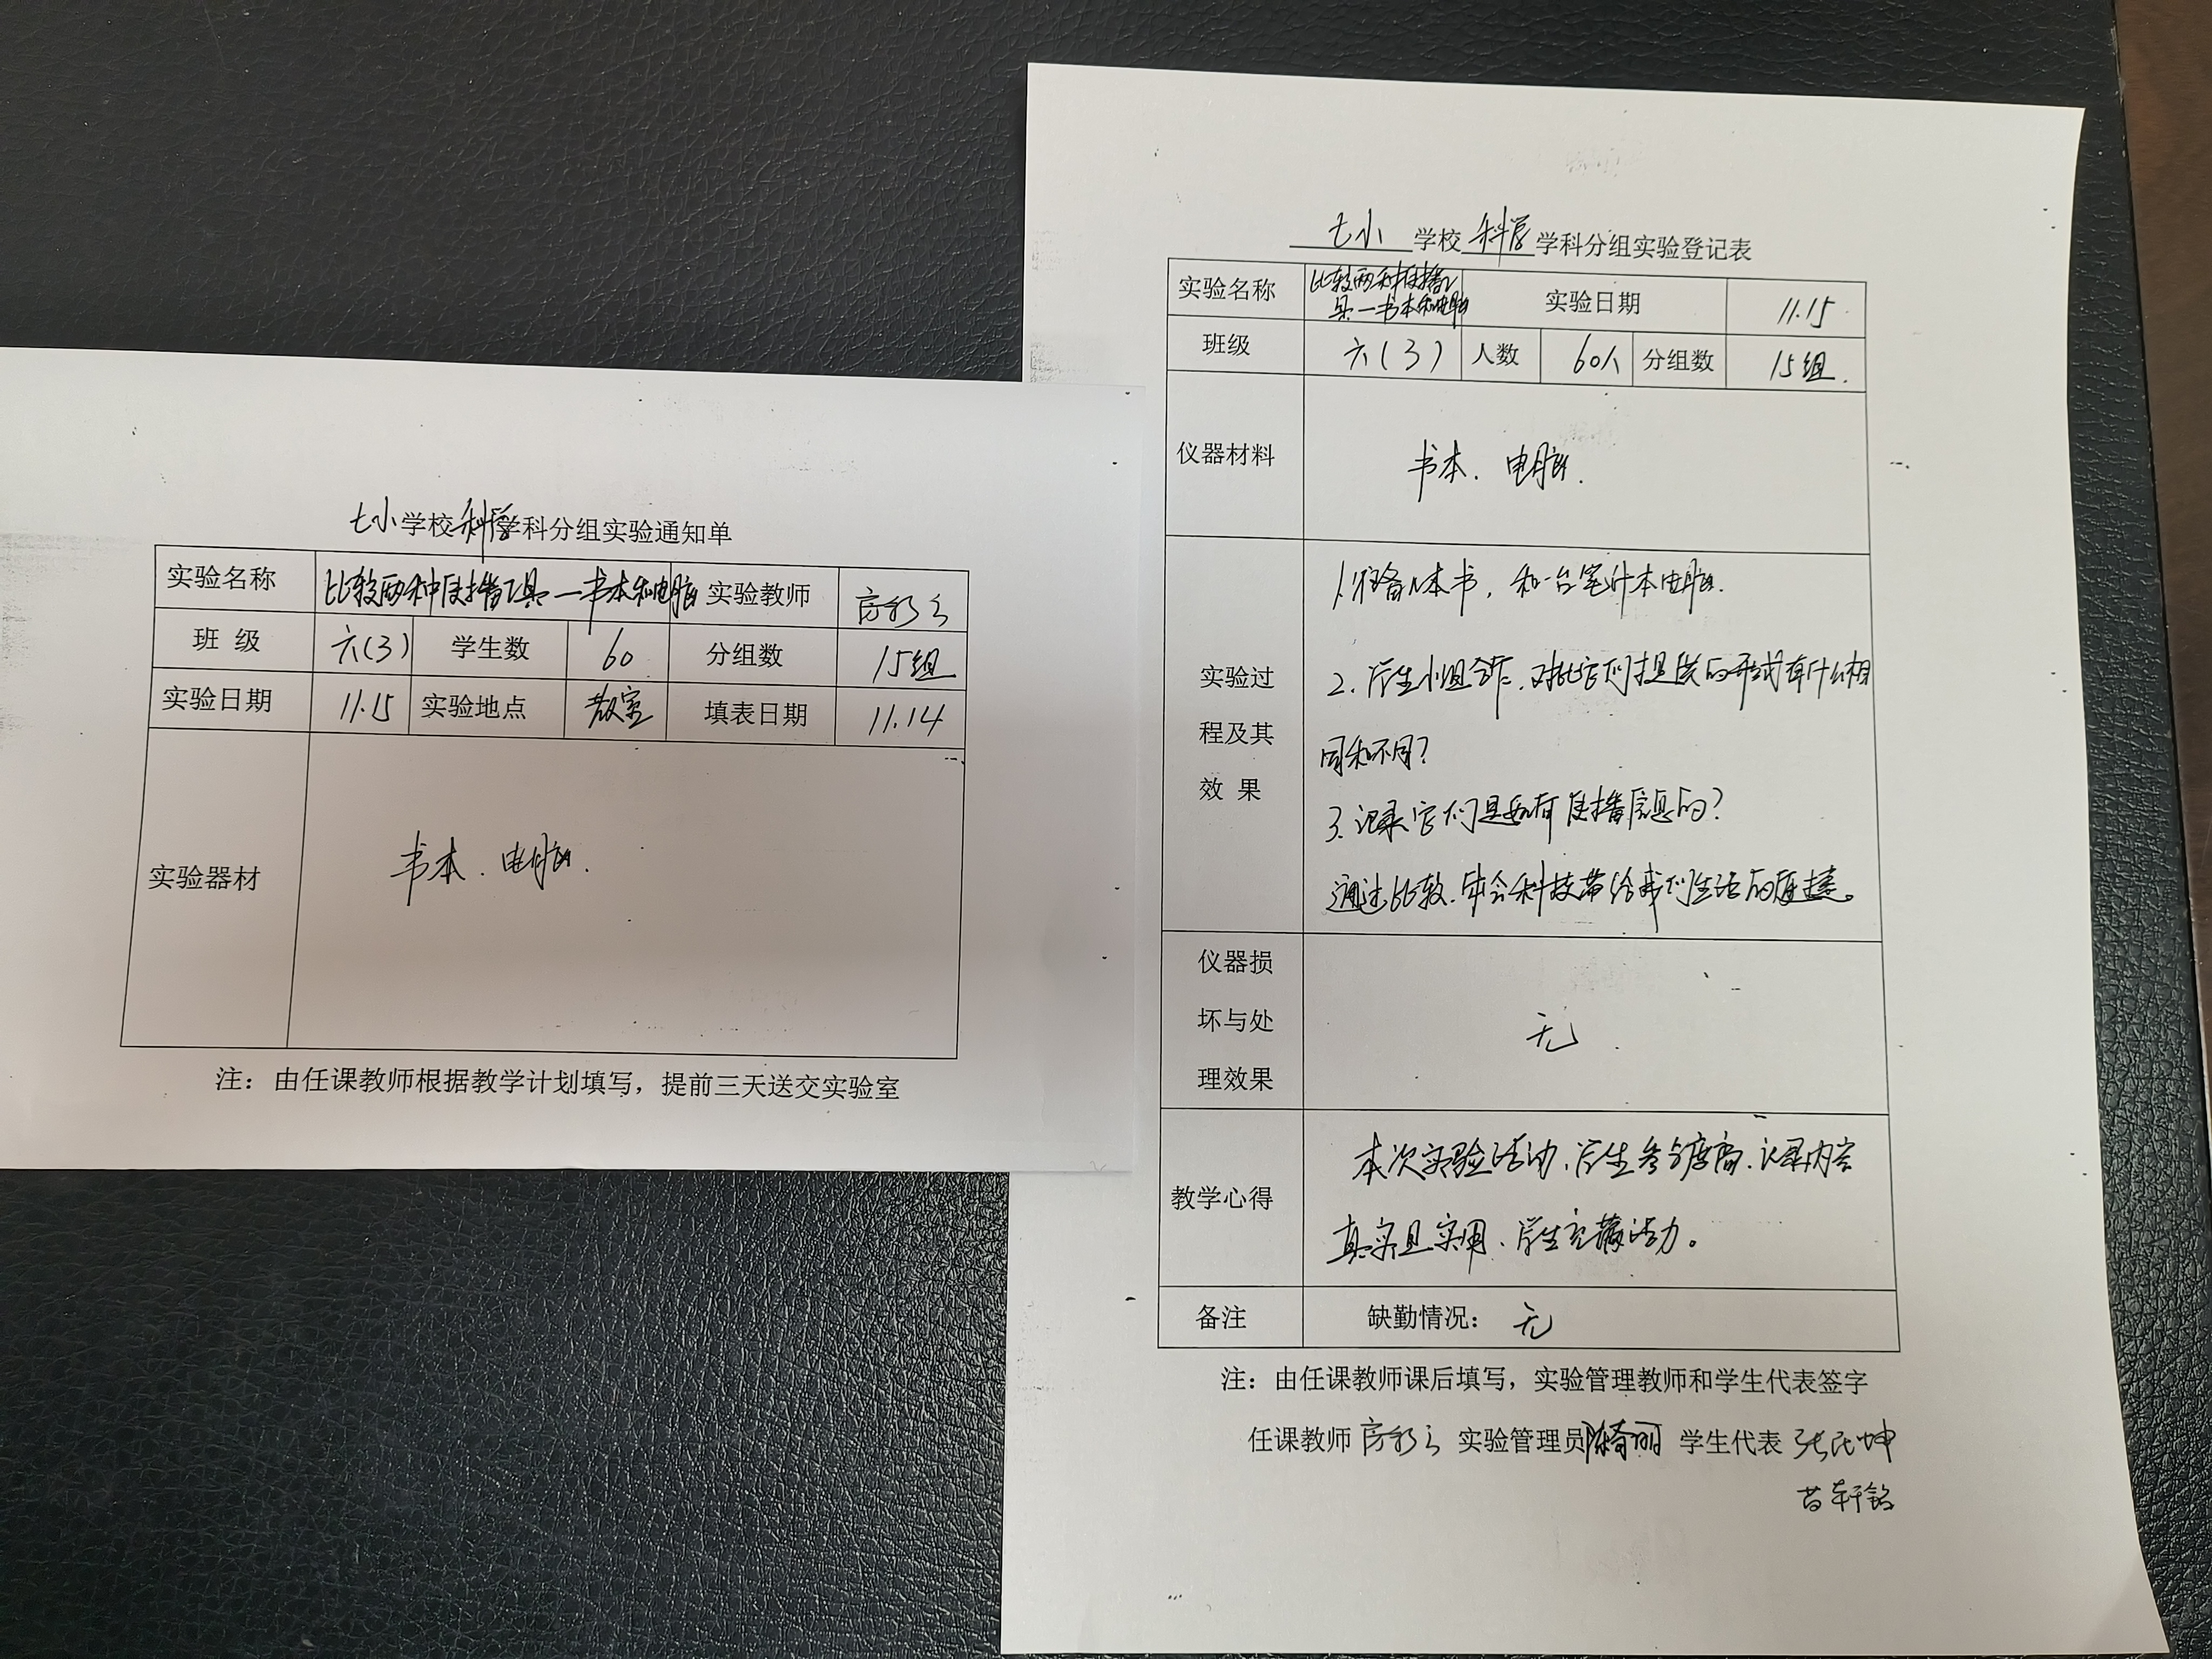 七小学校科学学科分组实验通知单
实验名称 比较两种传播工具—书本和电脑 实验教师
班 级 六(3) 学生数 60 分组数 15组
实验日期 11.15 实验地点 教室 填表日期 11.14
实验器材 书本、电脑.
注：由任课教师根据教学计划填写，提前三天送交实验室
七小 学校 科学 学科分组实验登记表
实验名称 比较两种传播工
具—书本和电脑 实验日期 11.15
班级 六(3) 人数 60人 分组数 15组.
仪器材料 书本、电脑.
实验过
程及其
效 果
1.准备几本书，和一台笔计本电脑.
2.学生小组合作，对比它们提供的形式有什么相
同和不同？
3.记录它们是如何传播信息的？
通过比较，体会科技带给我们生活的便捷。
仪器损
坏与处
理效果
无
教学心得
本次实验活动，学生参与度高，记录内容
真实且实用，学生充满活力。
备注 缺勤情况： 无
注：由任课教师课后填写，实验管理教师和学生代表签字
任课教师 实验管理员 学生代表
轩铭